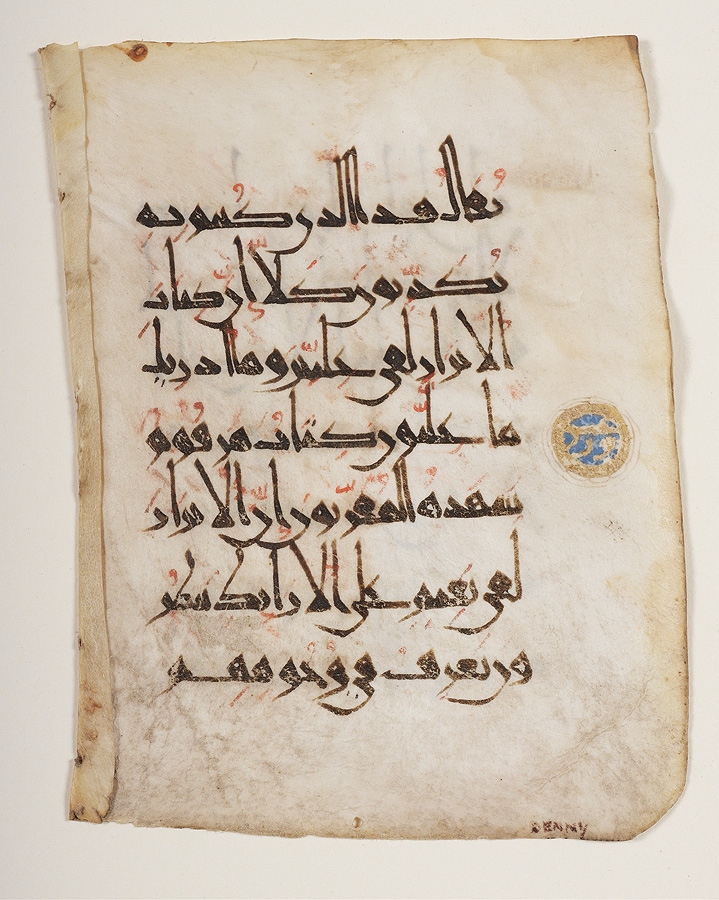 يقال هذا الذي كنتم به
تكذبون كلا ان كتاب
الابرار لفي عليين وما ادريك
ما عليون كتاب مرقوم
يشهده المقربون ان الابرار
لفي نعيم على الارائك ينظر
ون تعرف في وجوههم
DENNY